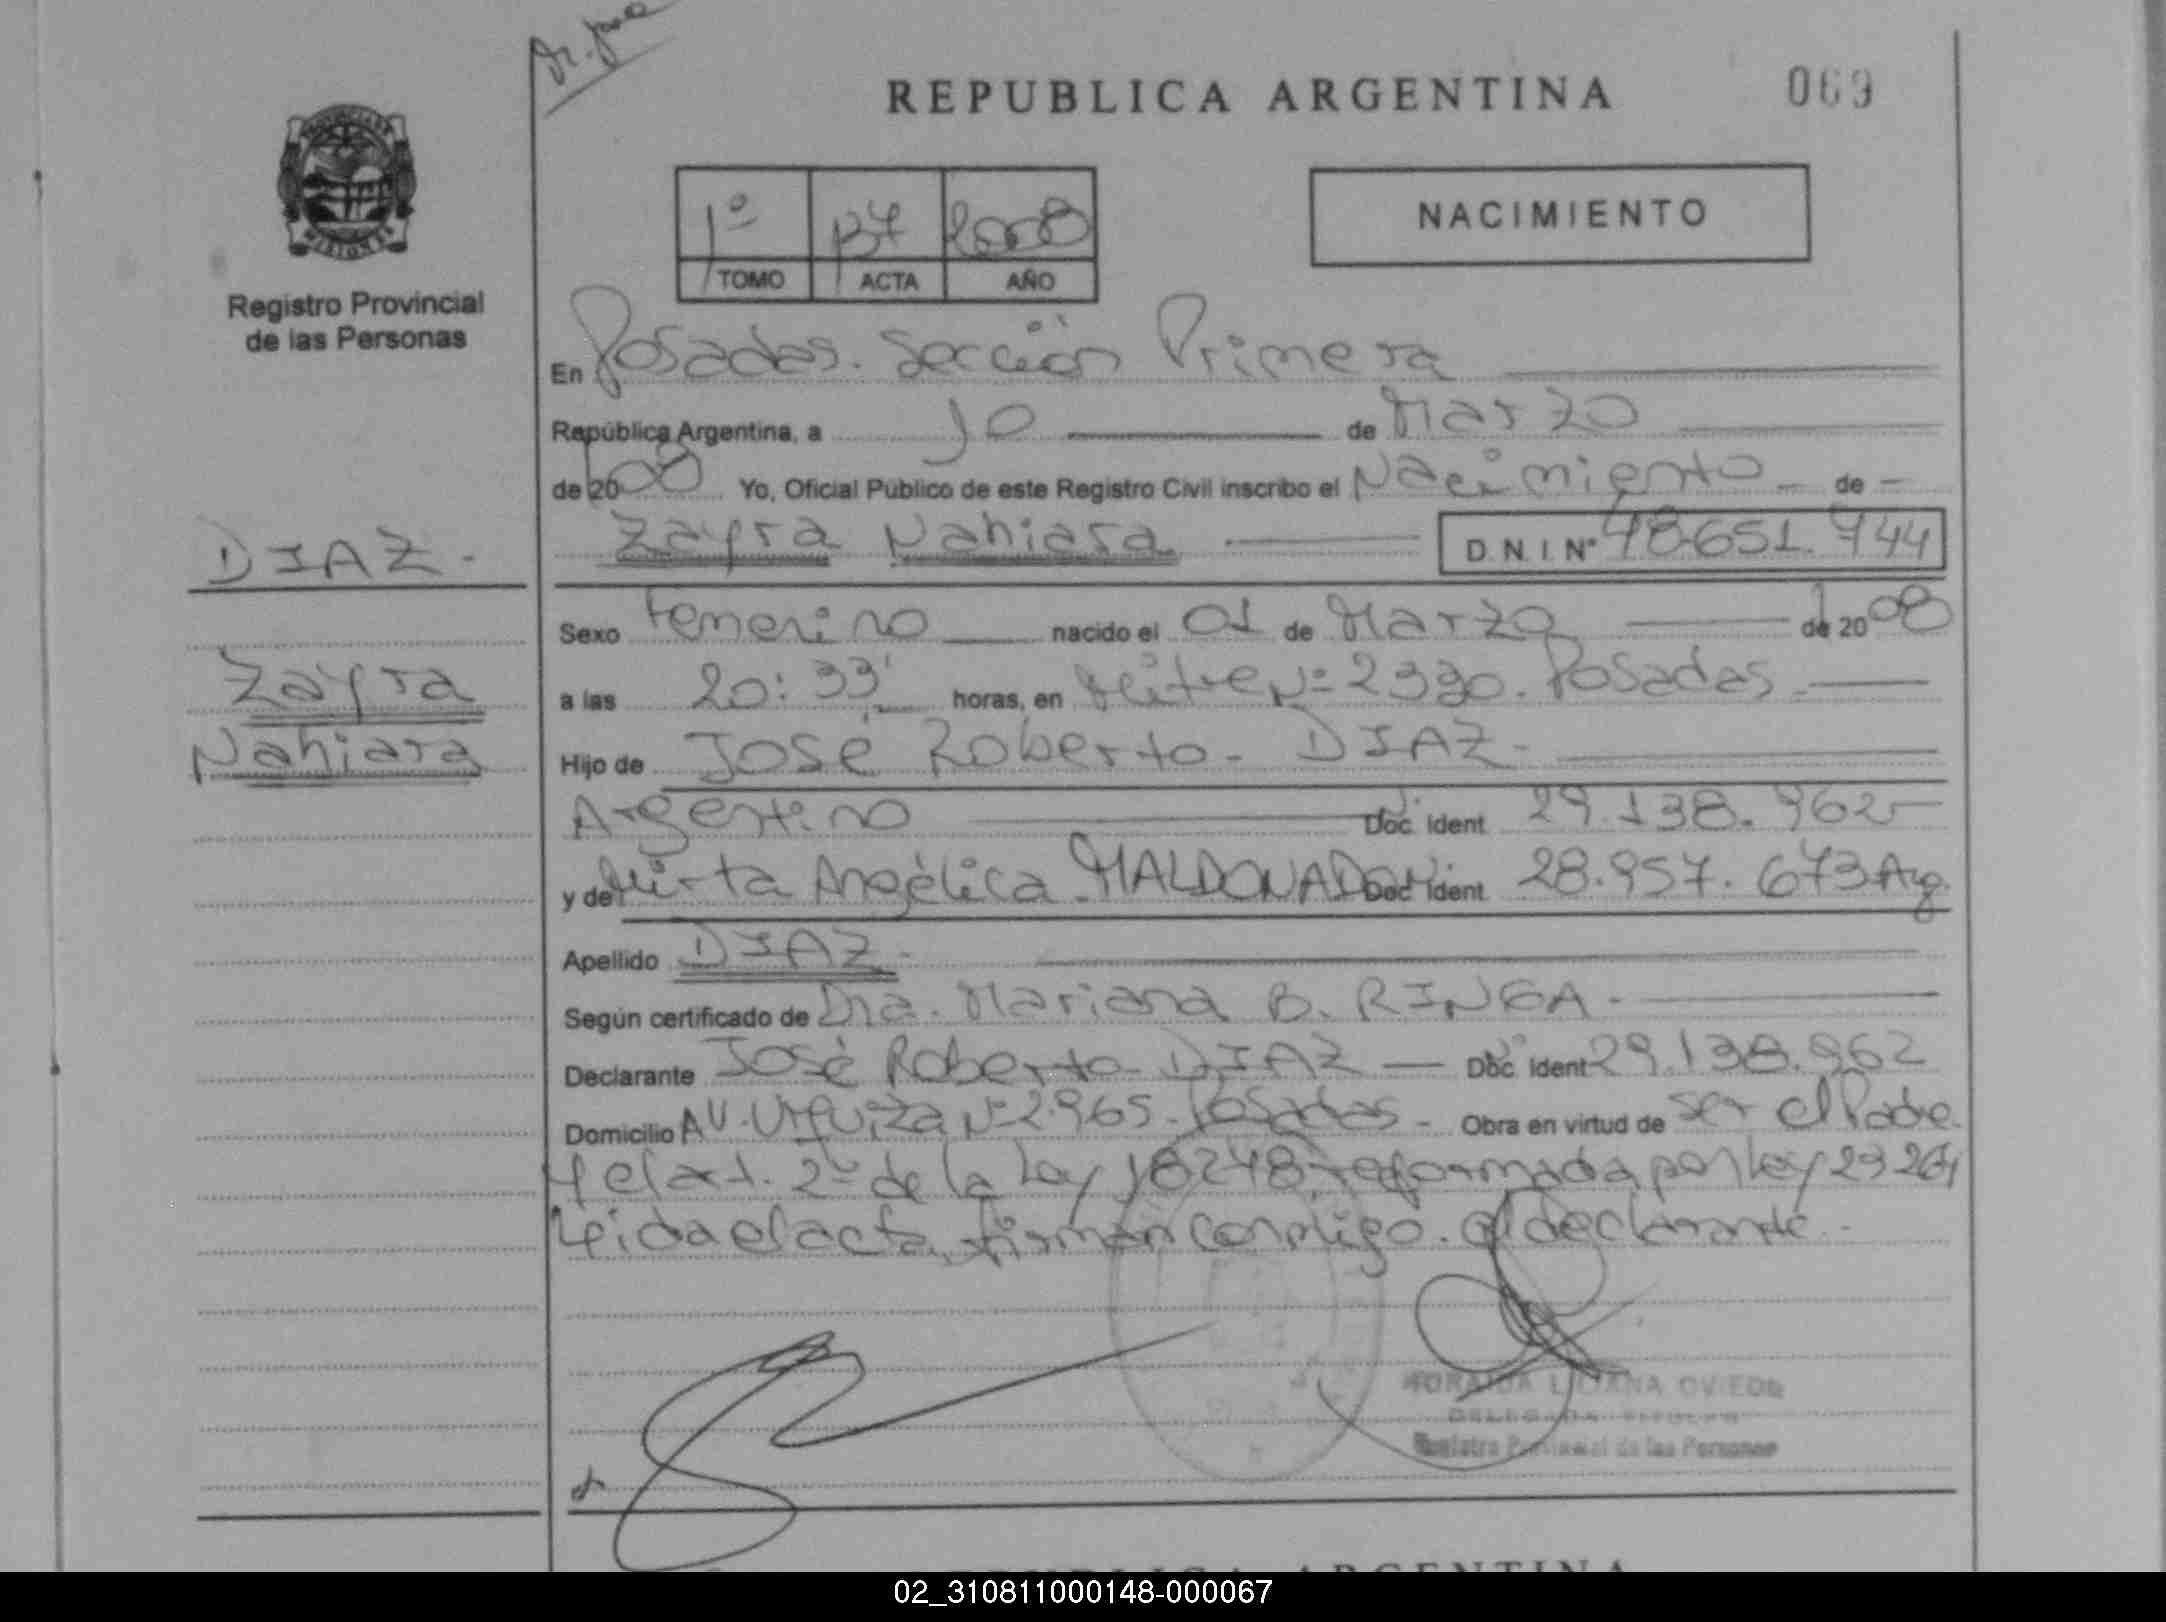 REPUBLICA ARGENTINA
069
PROVINCIA DE
MISIONES
Registro Provincial
de las Personas
1º 137 2008
TOMO ACTA AÑO
NACIMIENTO
En Posadas. Sección Primera
República Argentina, a 10 de Marzo
de 2008 Yo, Oficial Público de este Registro Civil inscribo el Nacimiento de
Zayra Nahiara D.N.I. Nº 48.651.744
DIAZ.
Zayra
Nahiara
Sexo Femenino nacido el 01 de Marzo de 2008
a las 20:33' horas, en Mitre Nº 2330. Posadas.
Hijo de José Roberto DIAZ.
Argentino Doc. Ident 29.138.962
y de Mirta Angélica MALDONADO Doc. Ident 28.957.673 Arg.
Apellido DIAZ.
Según certificado de Dra. Mariana B. RINGA.
Declarante José Roberto DIAZ Doc. Ident 29.138.962
Domicilio AV. Urquiza Nº 2.965. Posadas Obra en virtud de ser el Padre
y el art. 2º de la Ley 18248, reformada por Ley 23264
Leída el acta, firman conmigo. el declarante.
LILIANA OVIEDO
Registro Provincial de las Personas
REPUBLICA ARGENTINA
02_310811000148-000067